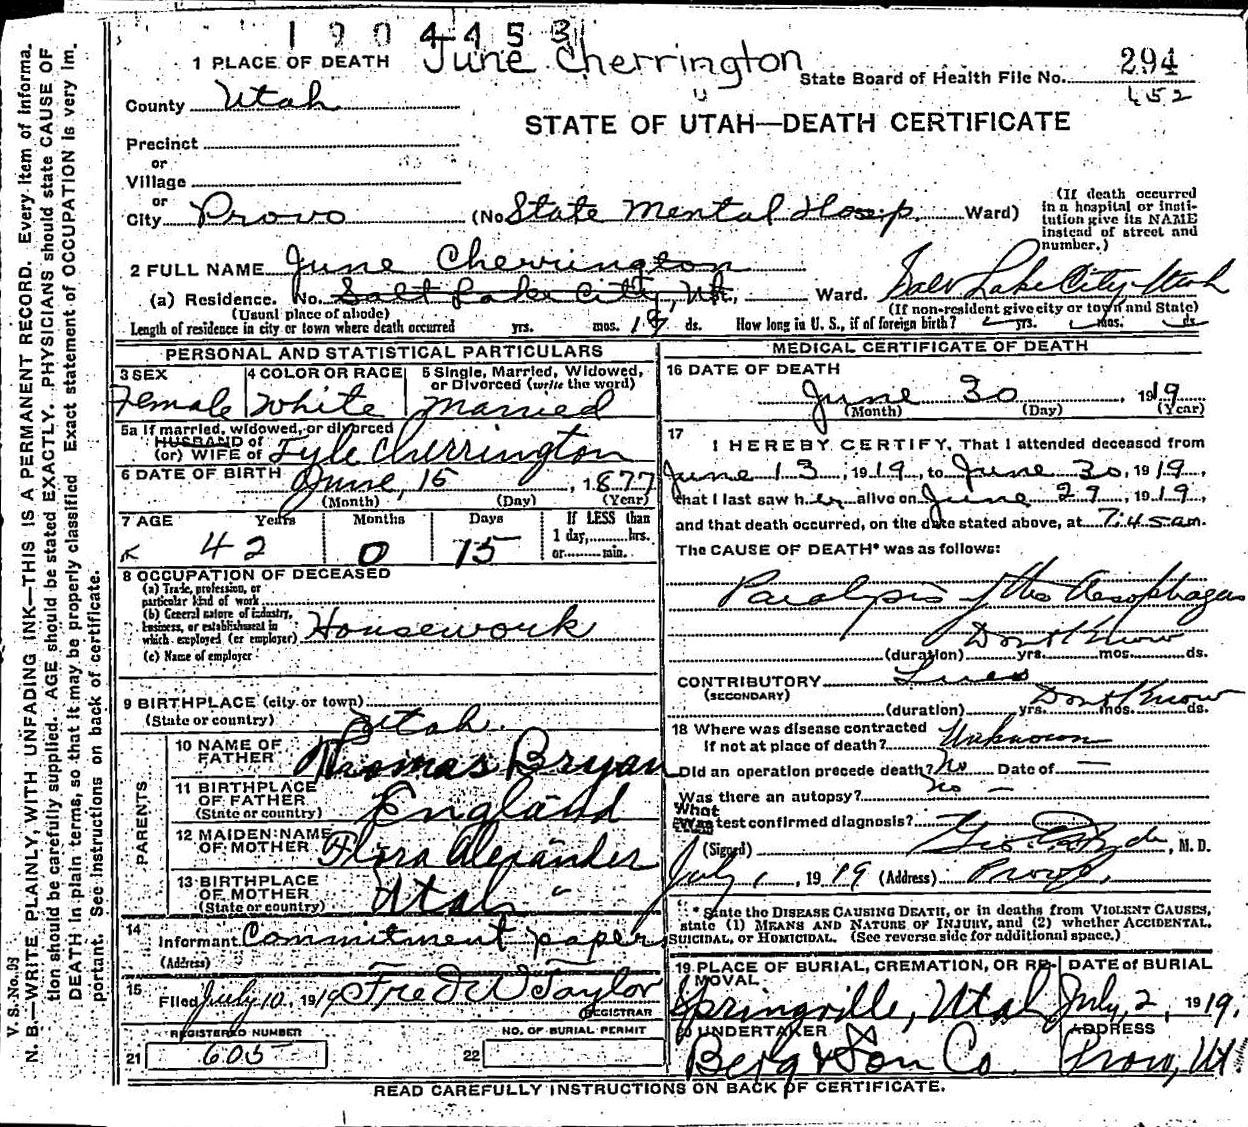 1904453
June Cherrington
1 PLACE OF DEATH
State Board of Health File No. 294
652
County Utah
STATE OF UTAH—DEATH CERTIFICATE
Precinct
or
Village
or
City Provo (No State Mental Hosp. Ward)
(If death occurred in a hospital or institution give its NAME instead of street and number.)
2 FULL NAME June Cherrington
(a) Residence. No. Salt Lake City, Ut., Ward. Salt Lake City Utah
(Usual place of abode) (If non-resident give city or town and State)
Length of residence in city or town where death occurred yrs. mos. 18 ds. How long in U. S., if of foreign birth? yrs. mos. ds.
PERSONAL AND STATISTICAL PARTICULARS
3 SEX Female
4 COLOR OR RACE White
5 Single, Married, Widowed, or Divorced (write the word) Married
5a If married, widowed, or divorced
HUSBAND of
(or) WIFE of Lyle Cherrington
6 DATE OF BIRTH June, 15, 1877
(Month) (Day) (Year)
7 AGE Years Months Days If LESS than
42 0 15 1 day, hrs.
or min.
8 OCCUPATION OF DECEASED
(a) Trade, profession, or particular kind of work
(b) General nature of industry, business, or establishment in which employed (or employer) Housework
(c) Name of employer
9 BIRTHPLACE (city or town)
(State or country) Utah.
PARENTS
10 NAME OF FATHER Thomas Bryan
11 BIRTHPLACE OF FATHER (State or country) England
12 MAIDEN NAME OF MOTHER Flora Alexander
13 BIRTHPLACE OF MOTHER (State or country) Utah "
14 Informant Commitment papers
(Address)
15 Filed July 10, 1919 Fred W Taylor
REGISTRAR
REGISTERED NUMBER
21 605
NO. OF BURIAL PERMIT
22
MEDICAL CERTIFICATE OF DEATH
16 DATE OF DEATH
June 30, 1919
(Month) (Day) (Year)
17 I HEREBY CERTIFY, That I attended deceased from
June 13, 1919, to June 30, 1919,
that I last saw her alive on June 29, 1919,
and that death occurred, on the date stated above, at 7:45 am.
The CAUSE OF DEATH* was as follows:
Paralysis of the Aesophagus
Dont Know
(duration) yrs. mos. ds.
CONTRIBUTORY Lues
(SECONDARY)
Dont Know
(duration) yrs. mos. ds.
18 Where was disease contracted
if not at place of death? Unknown
Did an operation precede death? No Date of —
Was there an autopsy? no —
What test confirmed diagnosis?
(Signed) Geo. E. Hyde, M. D.
July 1, 1919 (Address) Provo,
* State the DISEASE CAUSING DEATH, or in deaths from VIOLENT CAUSES,
state (1) MEANS AND NATURE OF INJURY, and (2) whether ACCIDENTAL,
SUICIDAL, OR HOMICIDAL. (See reverse side for additional space.)
19 PLACE OF BURIAL, CREMATION, OR REMOVAL Springville, Utah
DATE of BURIAL July, 2, 1919.
20 UNDERTAKER Berg & Son Co.
ADDRESS Provo, Ut
READ CAREFULLY INSTRUCTIONS ON BACK OF CERTIFICATE.
V. S. No. 93
N. B.—WRITE PLAINLY, WITH UNFADING INK—THIS IS A PERMANENT RECORD. Every item of informa-
tion should be carefully supplied. AGE should be stated EXACTLY. PHYSICIANS should state CAUSE OF
DEATH in plain terms, so that it may be properly classified. Exact statement of OCCUPATION is very im-
portant. See instructions on back of certificate.